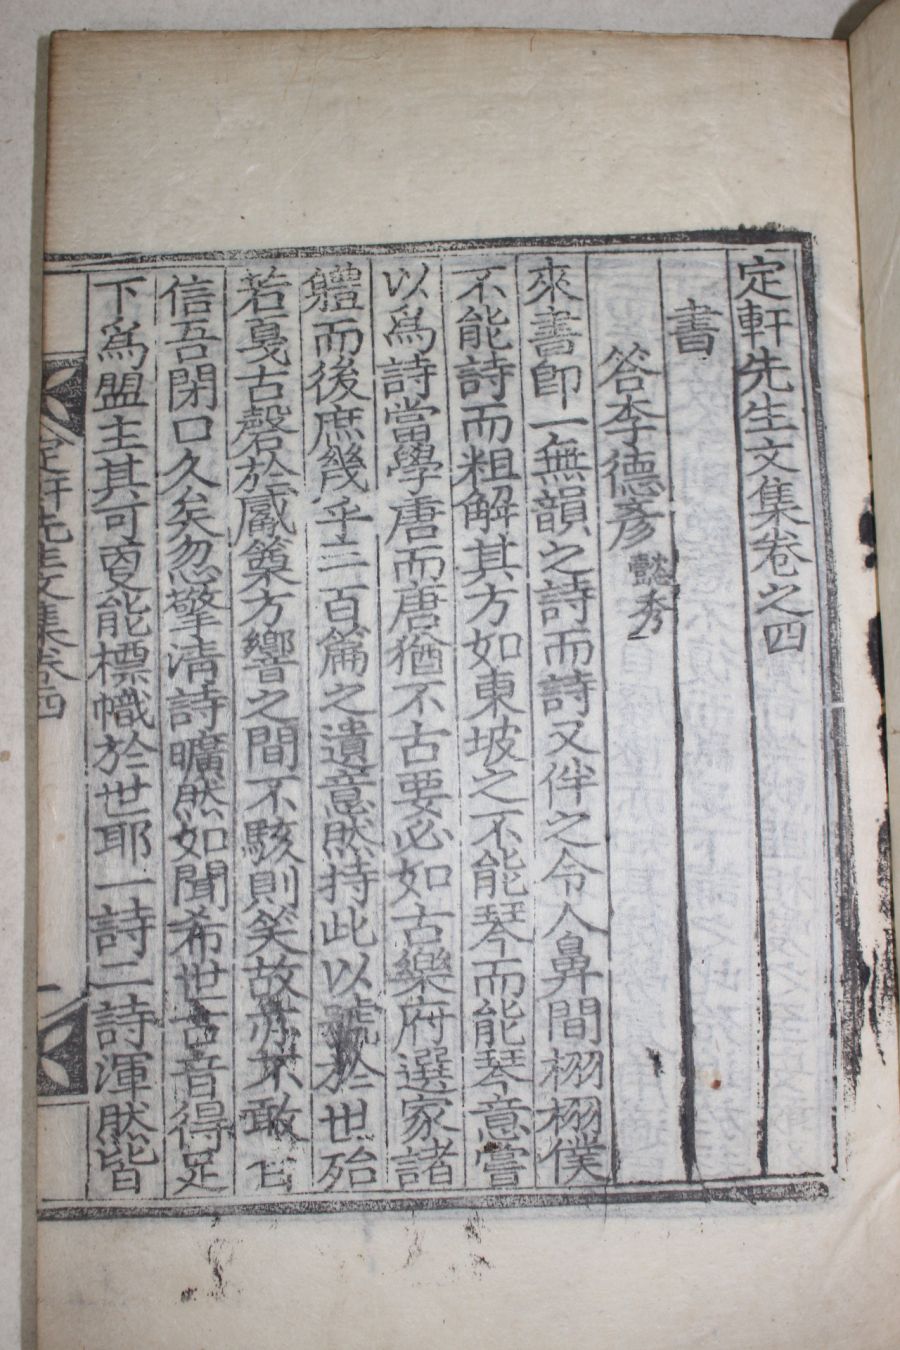 定軒先生文集卷之四
書
答李德彥 懿秀
來書卽一無韻之詩而詩又伴之令人鼻間栩栩僕
不能詩而粗解其方如東坡之不能琴而能琴意嘗
以爲詩當學唐而唐猶不古要必如古樂府選家諸
體而後庶幾乎三百篇之遺意然持此以號於世殆
若戛古磬於觱篥方響之間不駭則笑故亦不敢
信吾閉口久矣忽擎清詩曠然如聞希世古音得足
下爲盟主其可更能標幟於世耶一詩二詩渾然皆
定軒先生文集卷四